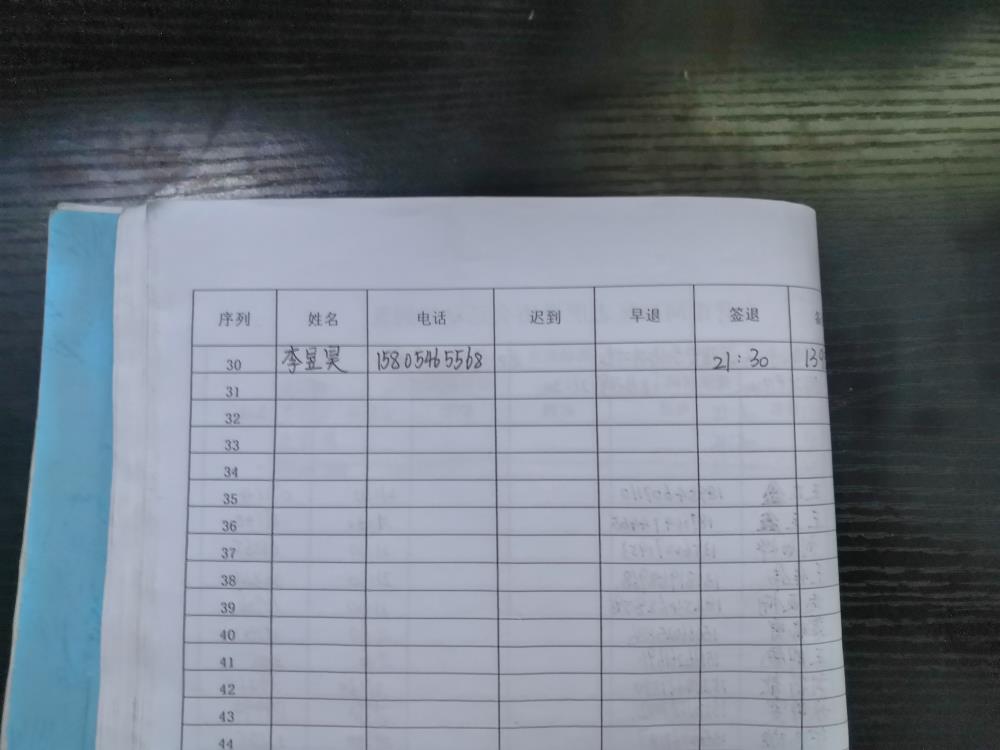 序列 姓名 电话 迟到 早退 签退
30 李昱昊 15805465568 21:30
31
32
33
34
35
36
37
38
39
40
41
42
43
44